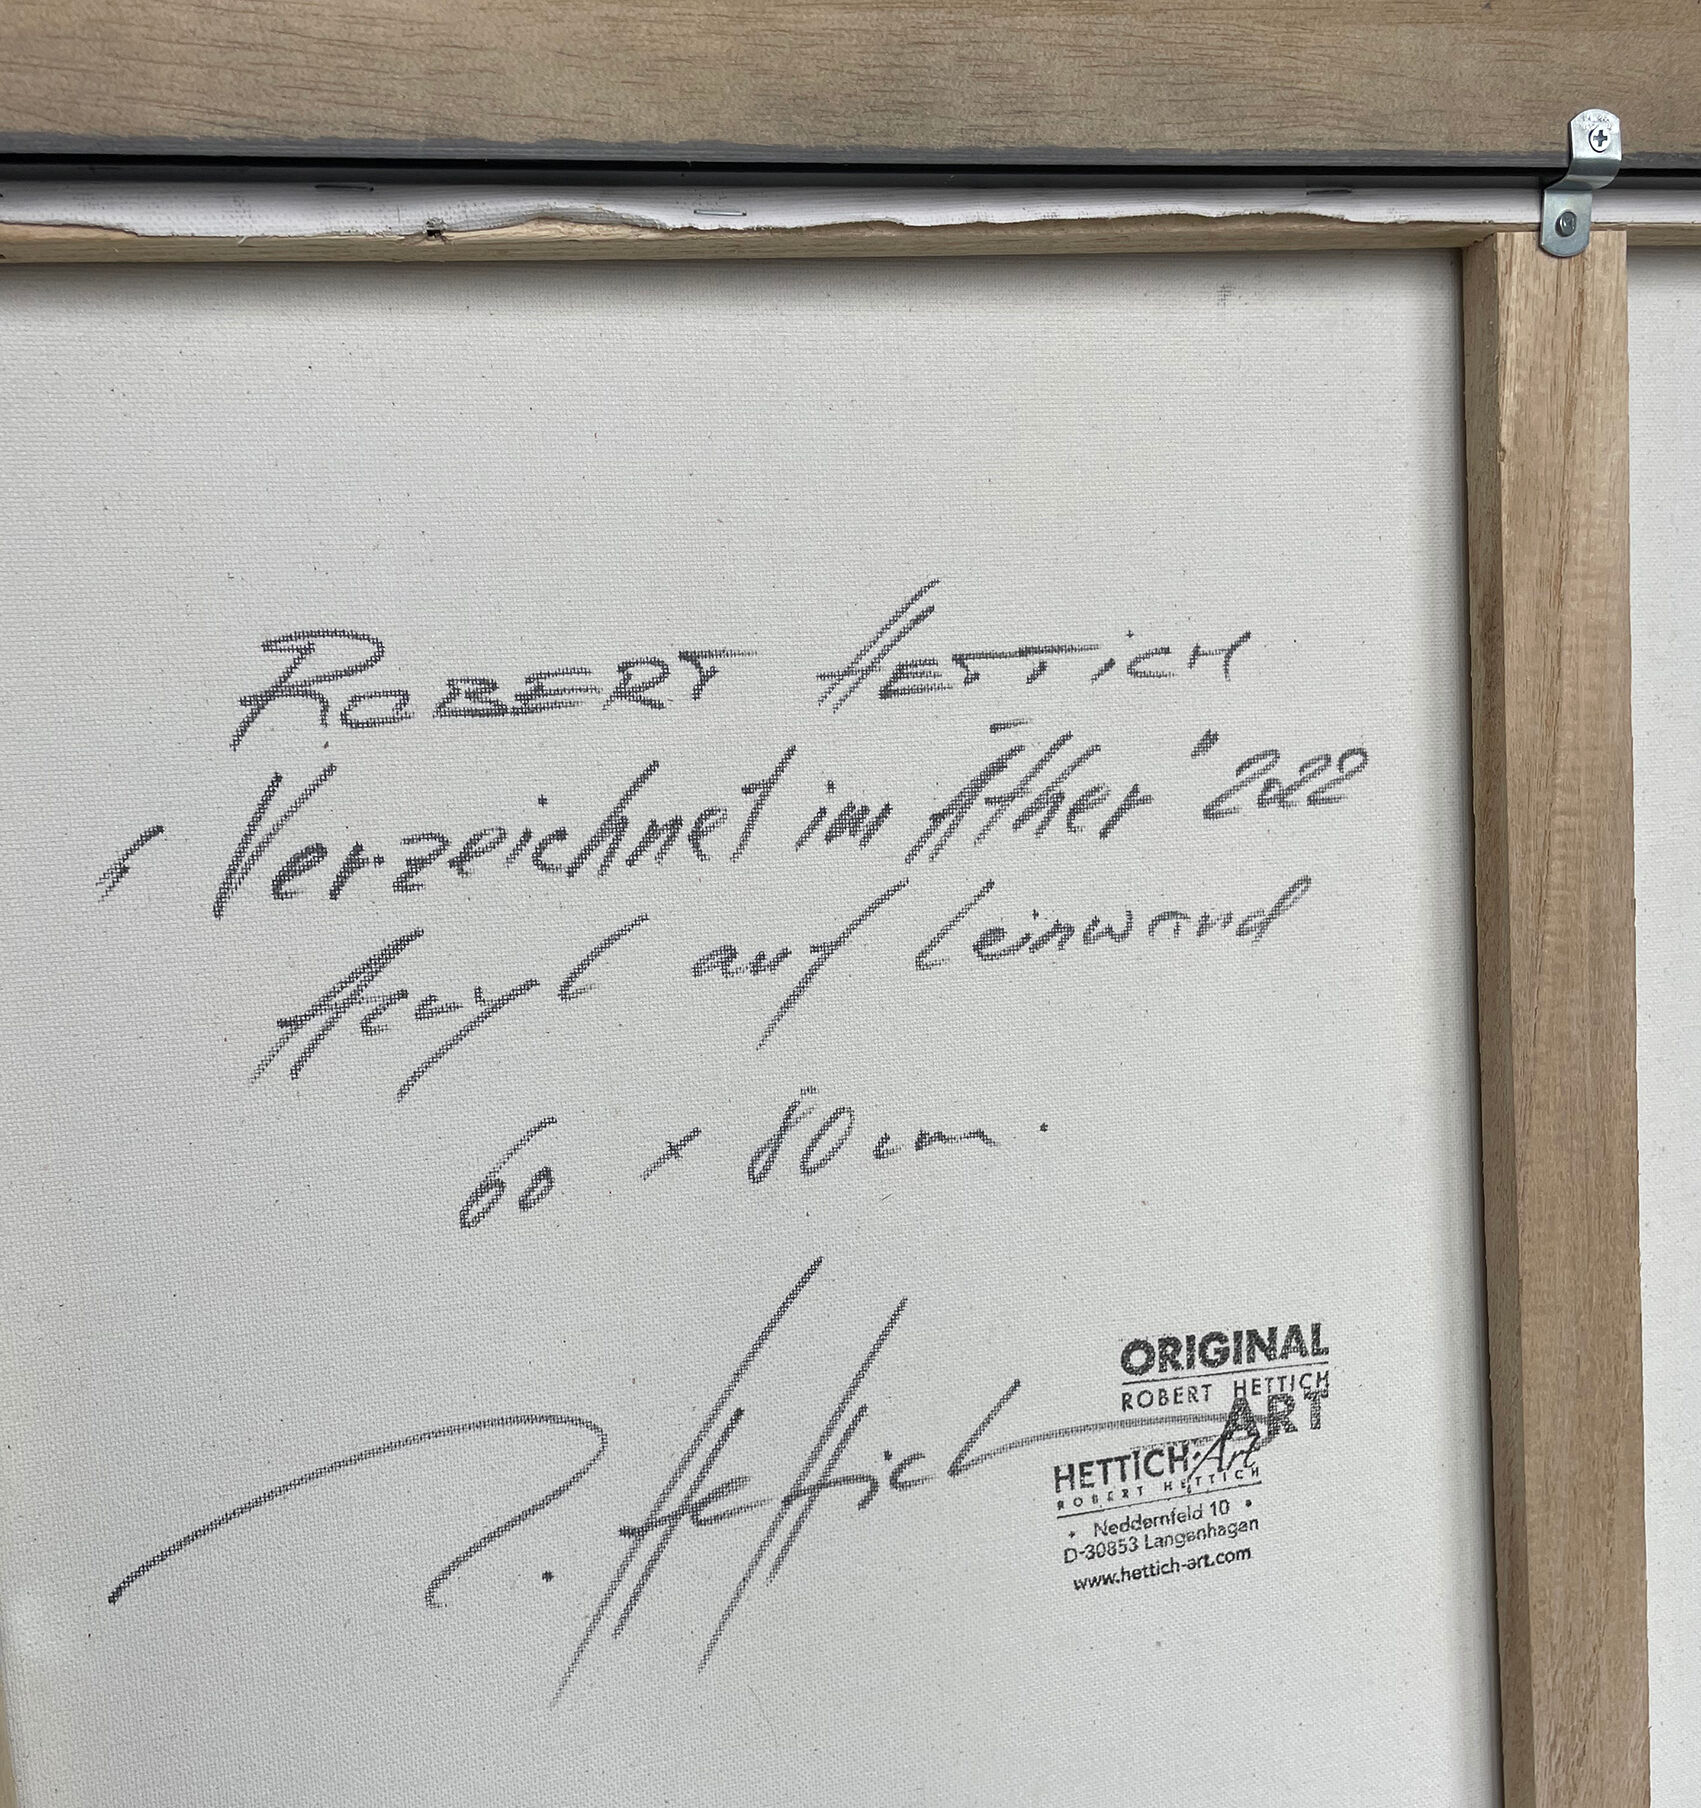 ROBERT HETTICH
"Verzeichnet im Äther" 2022
Acryl auf Leinwand
60 x 80 cm.
R. Hettich
ORIGINAL
ROBERT HETTICH
ART
HETTICH Art
ROBERT HETTICH
• Neddernfeld 10 •
D-30853 Langenhagen
www.hettich-art.com